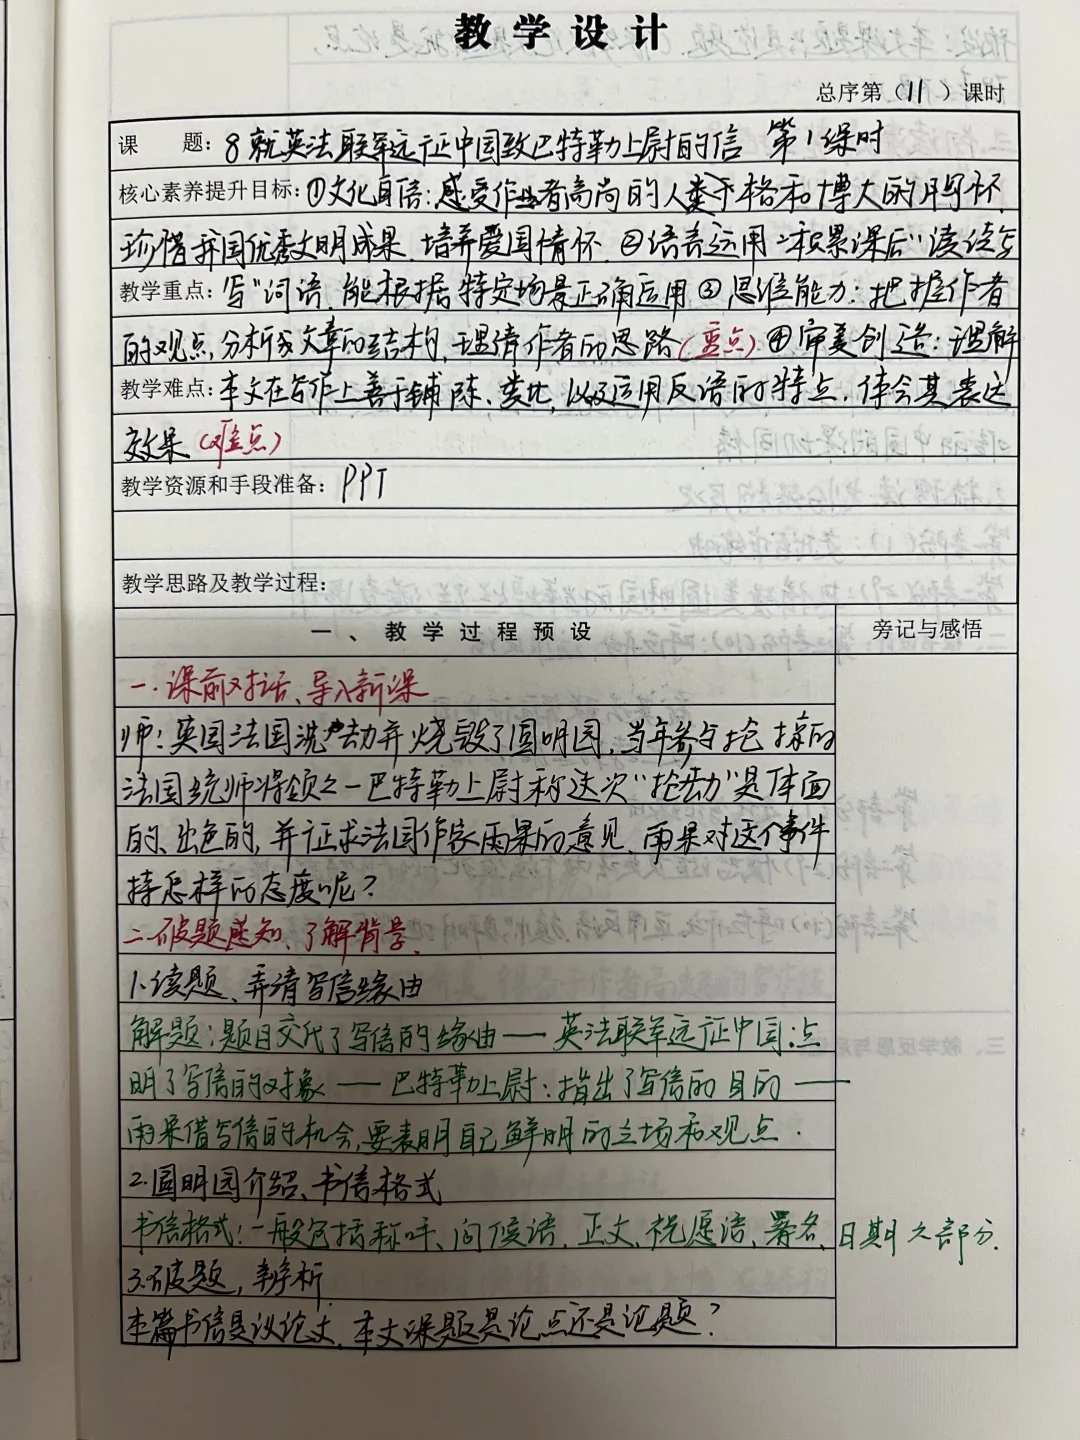 教学设计
总序第（11）课时
课 题：8 就英法联军远征中国致巴特勒上尉的信 第1课时
核心素养提升目标：①文化自信：感受作者高尚的人类于格和博大的胸怀
珍惜我国优秀文明成果，培养爱国情怀 ②语言运用：积累课后"读读写
教学重点：写"词语，能根据特定场景正确运用 ③思维能力：把握作者
的观点，分析文章的结构，理清作者的思路（重点）④审美创造：理解
教学难点：本文在写作上善于铺陈、类比，以及运用反语的特点，体会其表达
效果（难点）
教学资源和手段准备：PPT
教学思路及教学过程：
一、教学过程预设 旁记与感悟
一、课前对话、导入新课
师：英国法国洗劫并烧毁了圆明园，当年参与抢掠的
法国统帅将领之一巴特勒上尉称这次"抢劫"是体面
的、出色的，并证求法国作家雨果的意见，雨果对这个事件
持怎样的态度呢？
二、破题感知、了解背景
1.读题、弄清写信缘由
解题：题目交代了写信的缘由——英法联军远征中国；点
明了写信的对象——巴特勒上尉；指出了写信的目的——
雨果借写信的机会，要表明自己鲜明的立场和观点．
2.圆明园介绍、书信格式
书信格式：一般包括称呼、问候语、正文、祝愿语、署名、日期六部分．
3.破题，辨析
本篇书信是议论文，本文课题是论点还是论题？